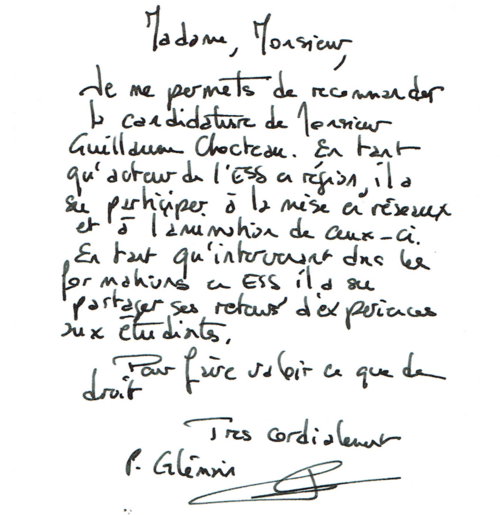 Madame, Monsieur,
Je me permets de recommander
la candidature de Monsieur
Guillaume Chocteau. En tant
qu'acteur de l'ESS en région, il a
su participer à la mise en réseaux
et à l'animation de ceux-ci.
En tant qu'intervenant dans les
formations en ESS il a su
partager ses retours d'expériences
aux étudiants.
Pour faire valoir ce que de
droit
Tres cordialement
P. Glémain